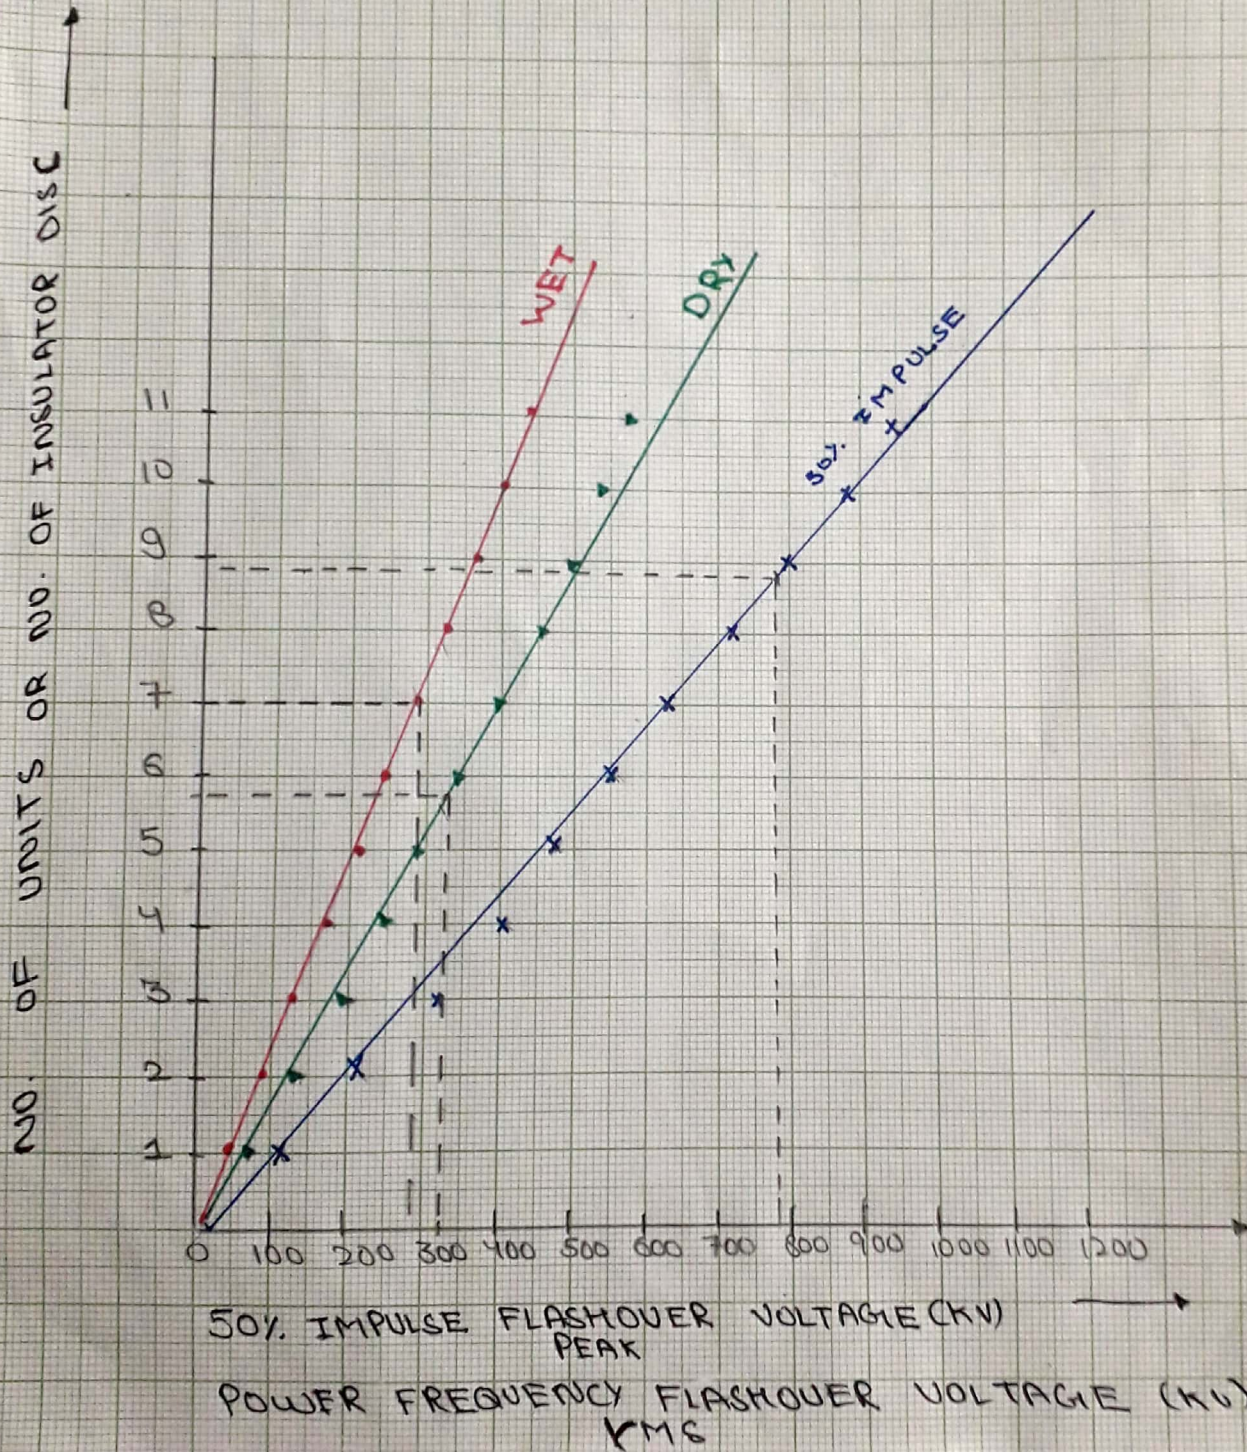 NO. OF UNITS OR NO. OF INSULATOR DISC
WET
DRY
50% IMPULSE
11
10
9
8
7
6
5
4
3
2
1
0 100 200 300 400 500 600 700 800 900 1000 1100 1200
50% IMPULSE FLASHOVER VOLTAGE (KV)
PEAK
POWER FREQUENCY FLASHOVER VOLTAGE (KV)
rMS